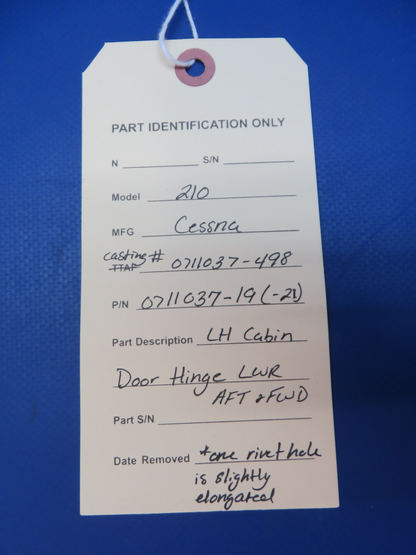 PART IDENTIFICATION ONLY
N ____________ S/N ____________
Model 210
MFG Cessna
casting #
TTAF 0711037-498
P/N 0711037-19 (-21)
Part Description LH Cabin
Door Hinge LWR
AFT & FWD
Part S/N
Date Removed *one rivet hole
is slightly
elongated